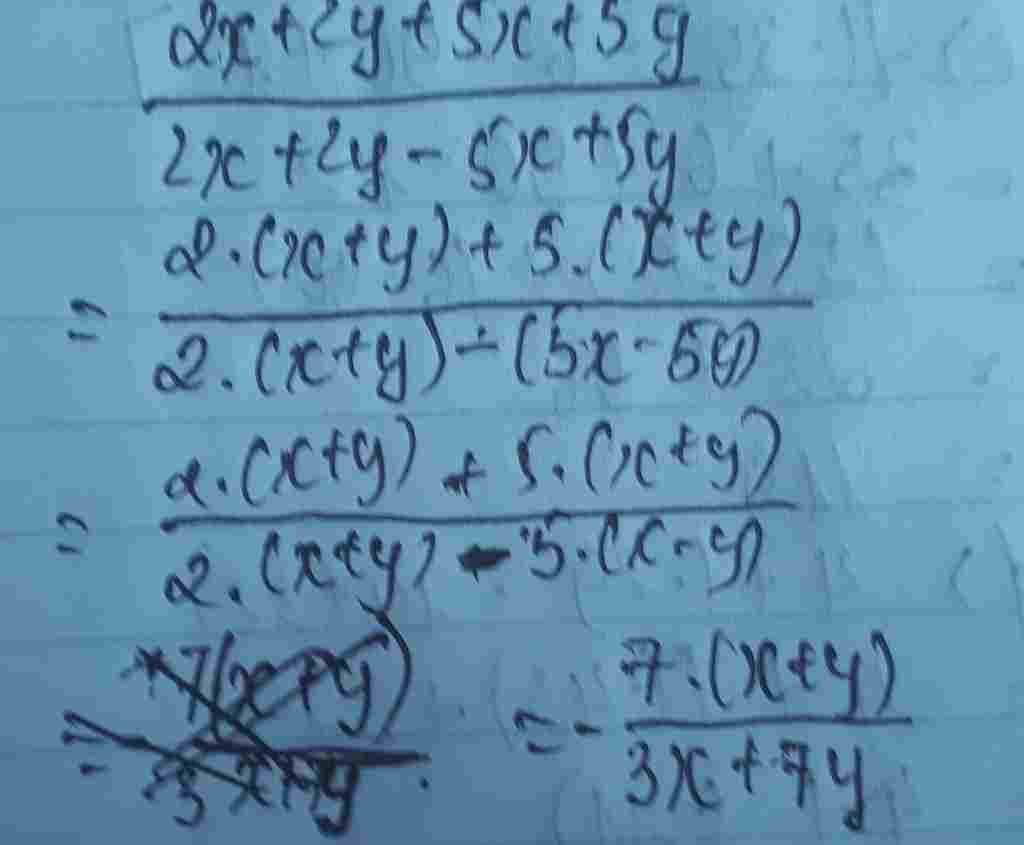 2x+2y+5x+5y
2x+2y-5x+5y
2.(x+y)+5.(x+y)
=
2.(x+y)-(5x-5y)
2.(x+y)+5.(x+y)
=
2.(x+y)-5.(x-y)
7(x+y)
=
=-
7.(x+y)
3x+7y